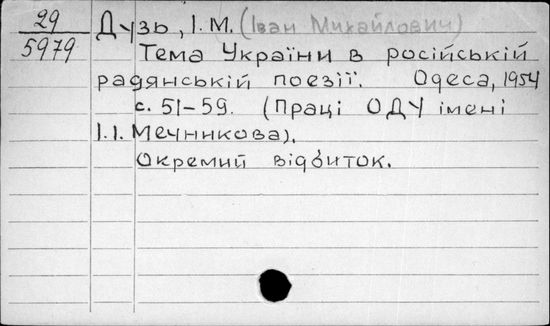 29 Дузь, І. М. (Іван Михайлович)
5979 Тема України в російській
радянській поезії. Одеса, 1954
с. 51-59. (Праці ОДУ імені
І.І. Мечникова).
Окремий відбиток.